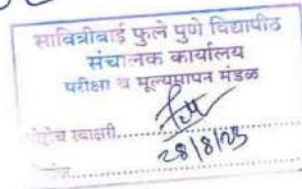 सावित्रीबाई फुले पुणे विद्यापीठ
संचालक कार्यालय
परीक्षा व मूल्यमापन मंडळ
स्वाक्षरी..................
28/8/25